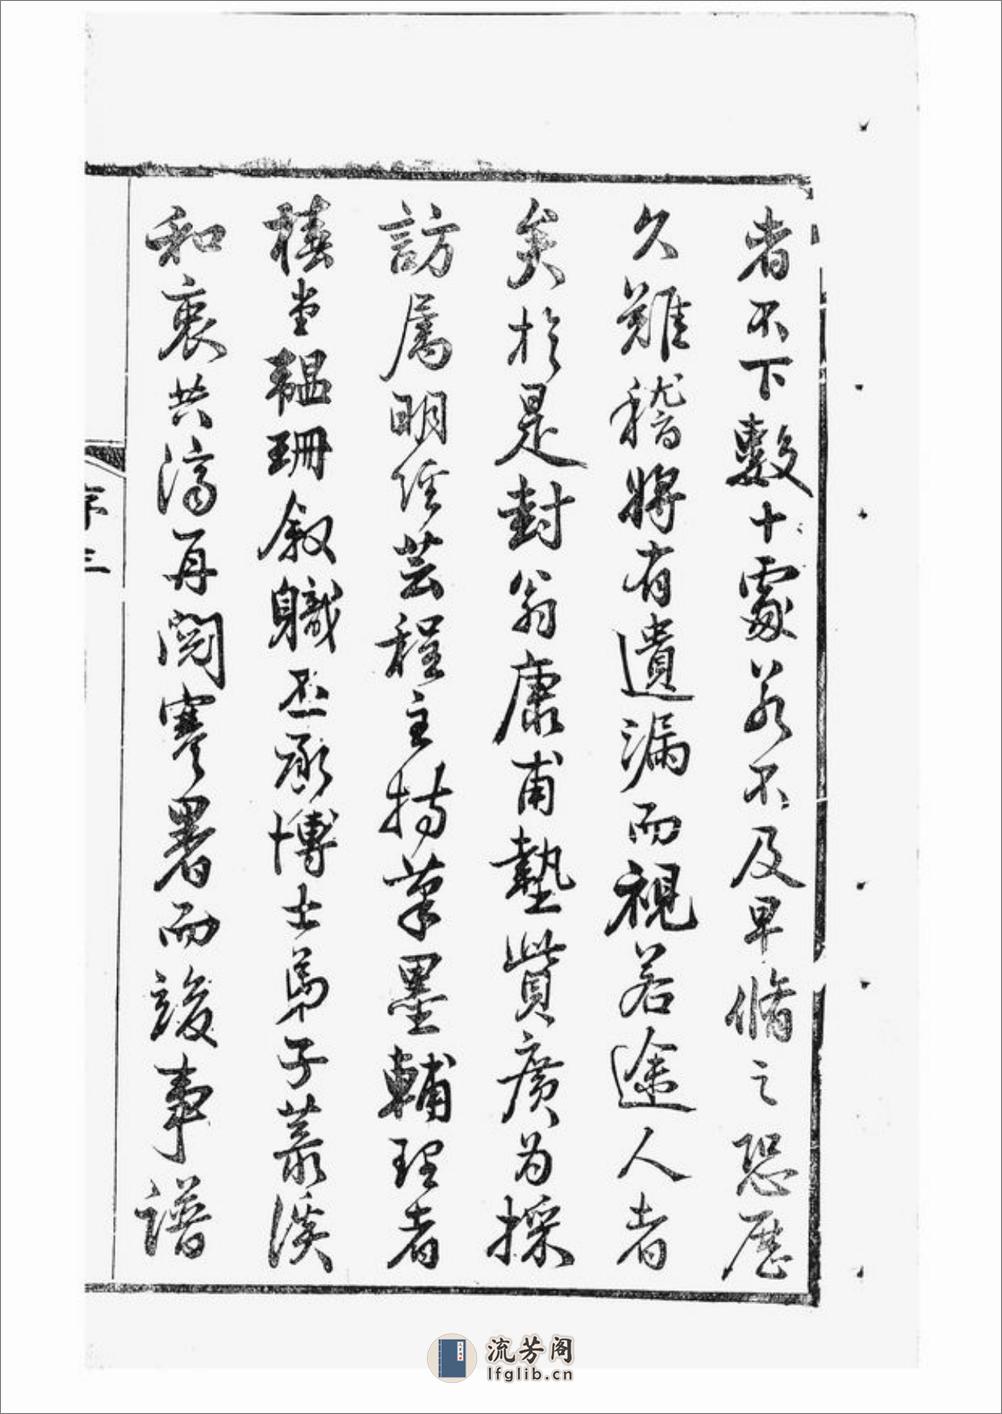 者不下數十處若不及早脩之恐歷
久難稽將有遺漏而視若途人者
矣於是封翁康甫墊貲廣為採
訪屬明經芸程主持筆墨輔理者
椿堂韞珊叙職丞承博士弟子叢溪
和衷共濟再閱寒暑而竣事譜
序 三
流芳阁
lfglib.cn